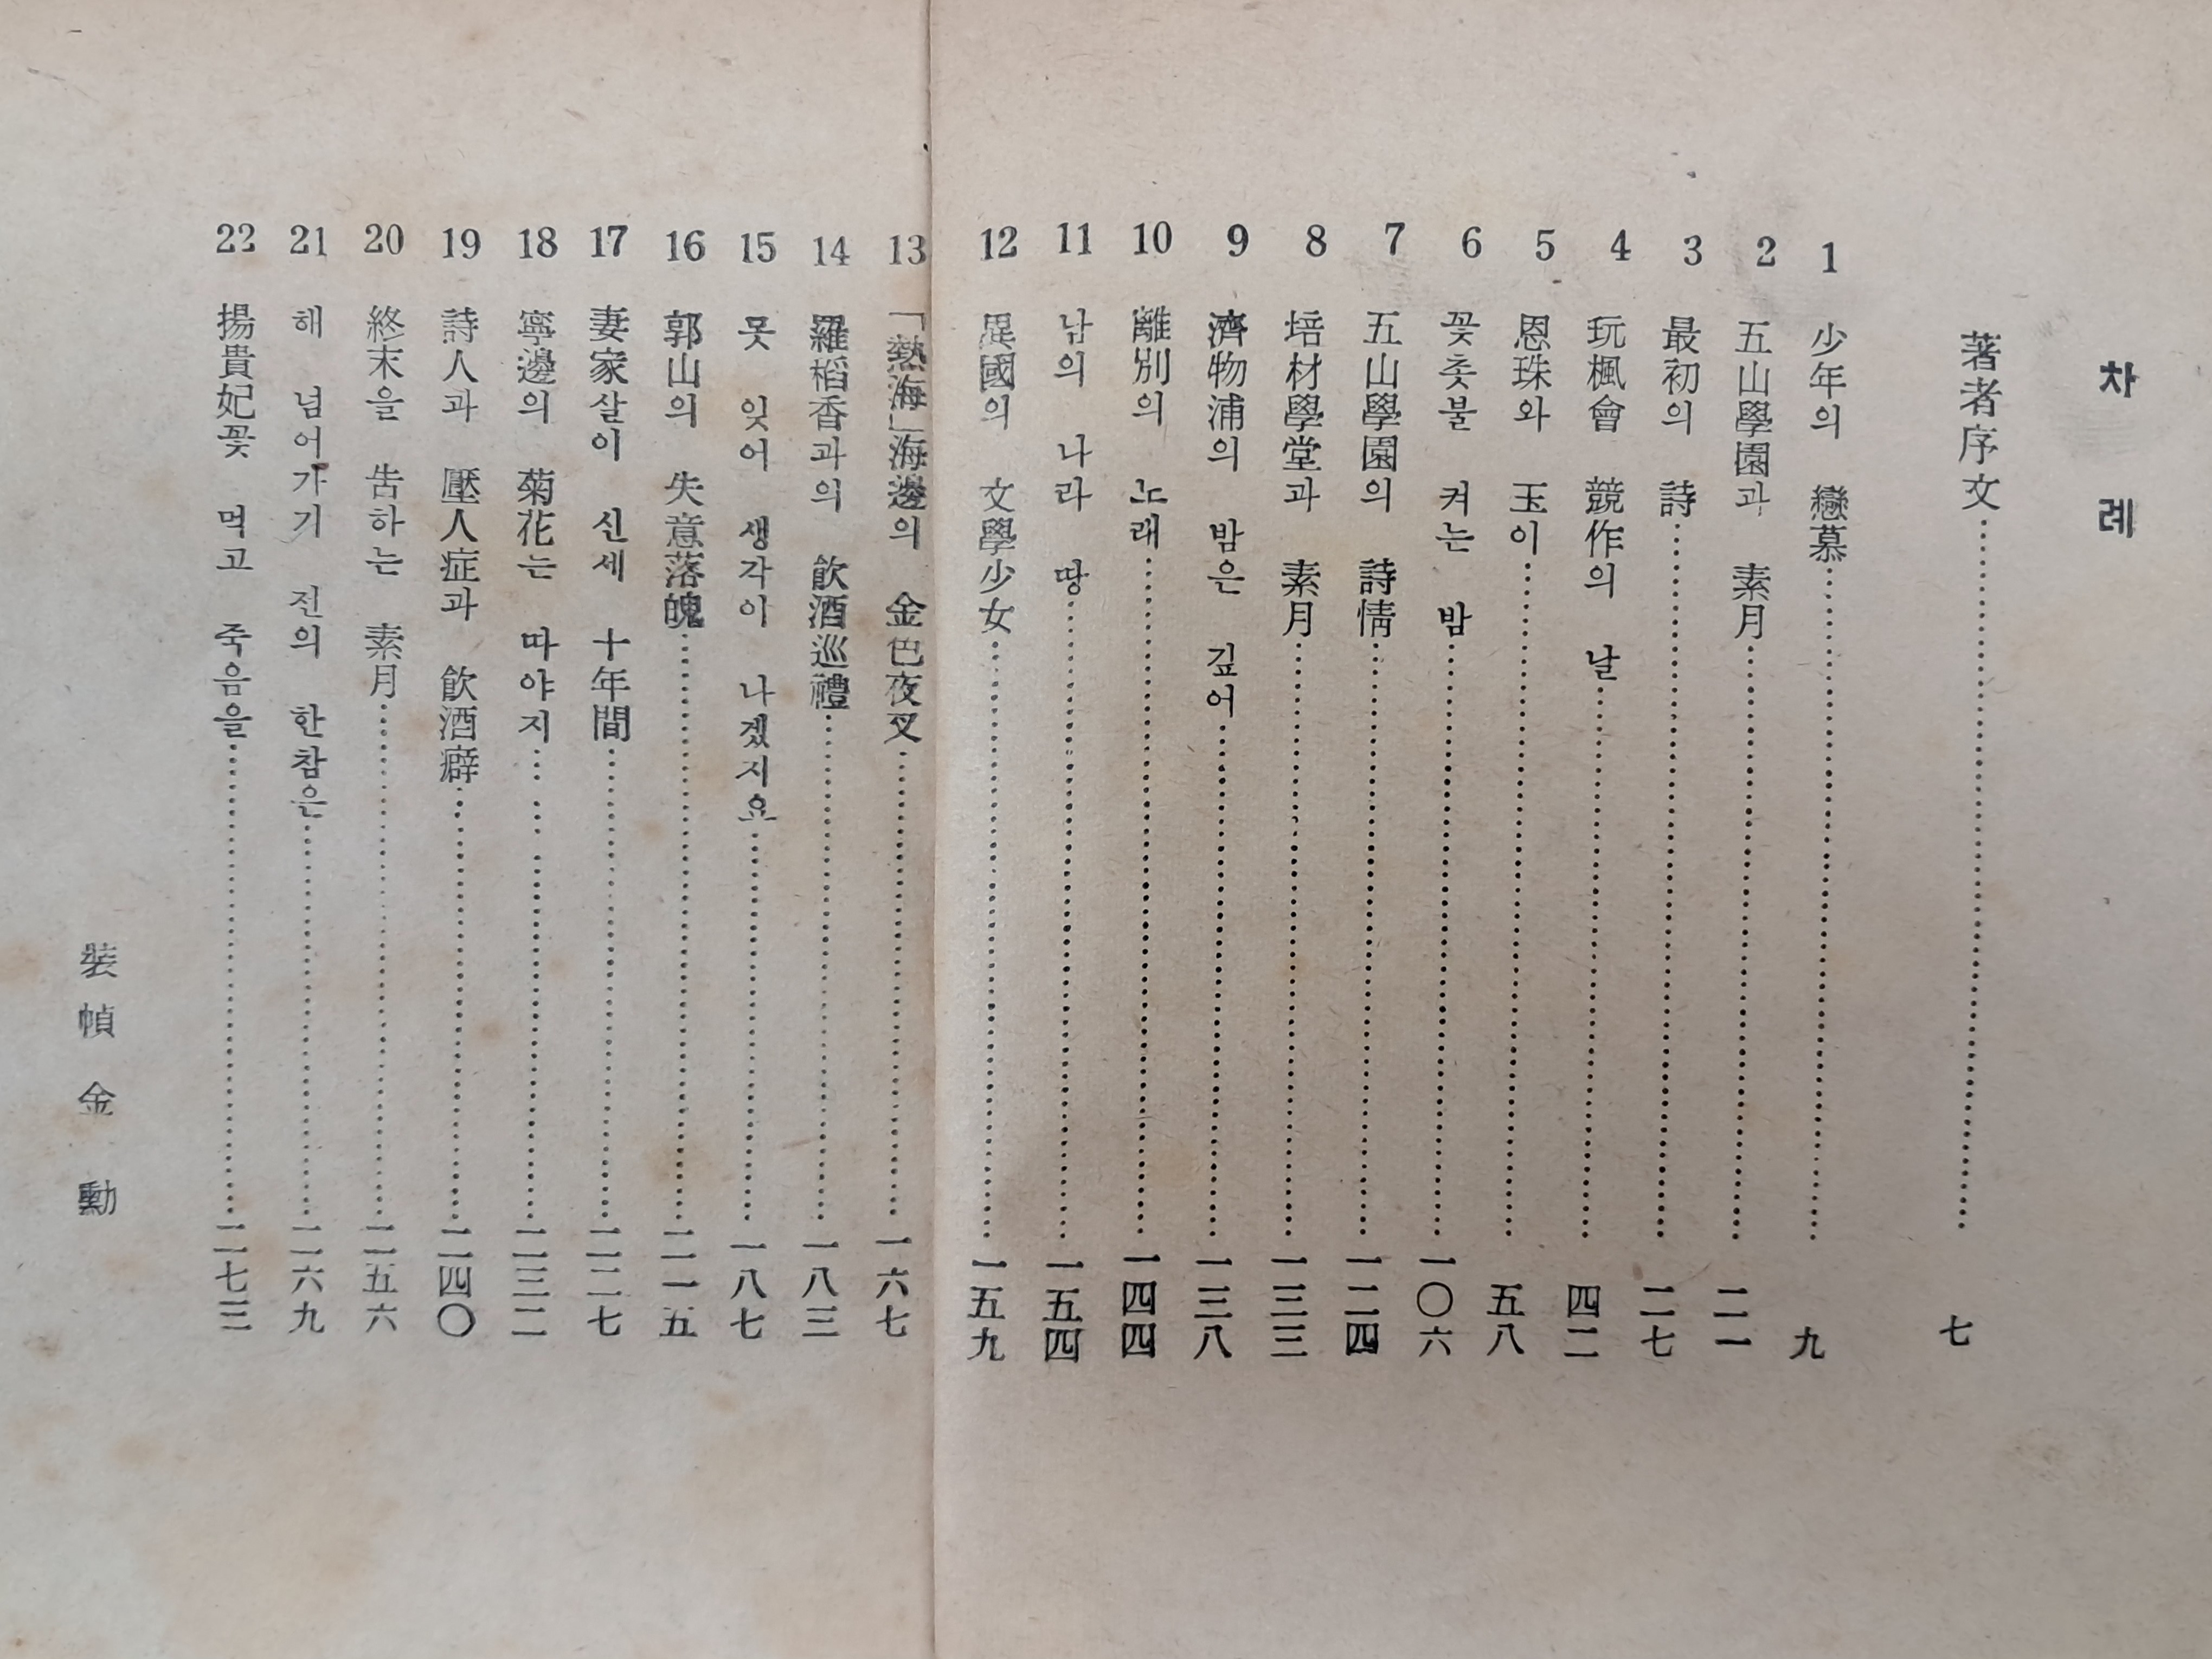 차례
著者序文……七
1 少年의 戀慕……九
2 五山學園과 素月……二一
3 最初의 詩……二七
4 玩楓會 競作의 날……四二
5 恩珠와 玉이……五八
6 꽃촛불 켜는 밤……一〇六
7 五山學園의 詩情……一二四
8 培材學堂과 素月……一三三
9 濟物浦의 밤은 깊어……一三八
10 離別의 노래……一四四
11 남의 나라 땅……一五四
12 異國의 文學少女……一五九
13 「熱海」海邊의 金色夜叉……一六七
14 羅稻香과의 飮酒巡禮……一八三
15 못 잊어 생각이 나겠지요……一八七
16 郭山의 失意落魄……二一五
17 妻家살이 신세 十年間……二二七
18 寧邊의 菊花는 따야지……二三二
19 詩人과 壓人症과 飮酒癖……二四〇
20 終末을 告하는 素月……二五六
21 해 넘어가기 전의 한참은……二六九
22 揚貴妃꽃 먹고 죽음을……二七三
裝幀 金勳